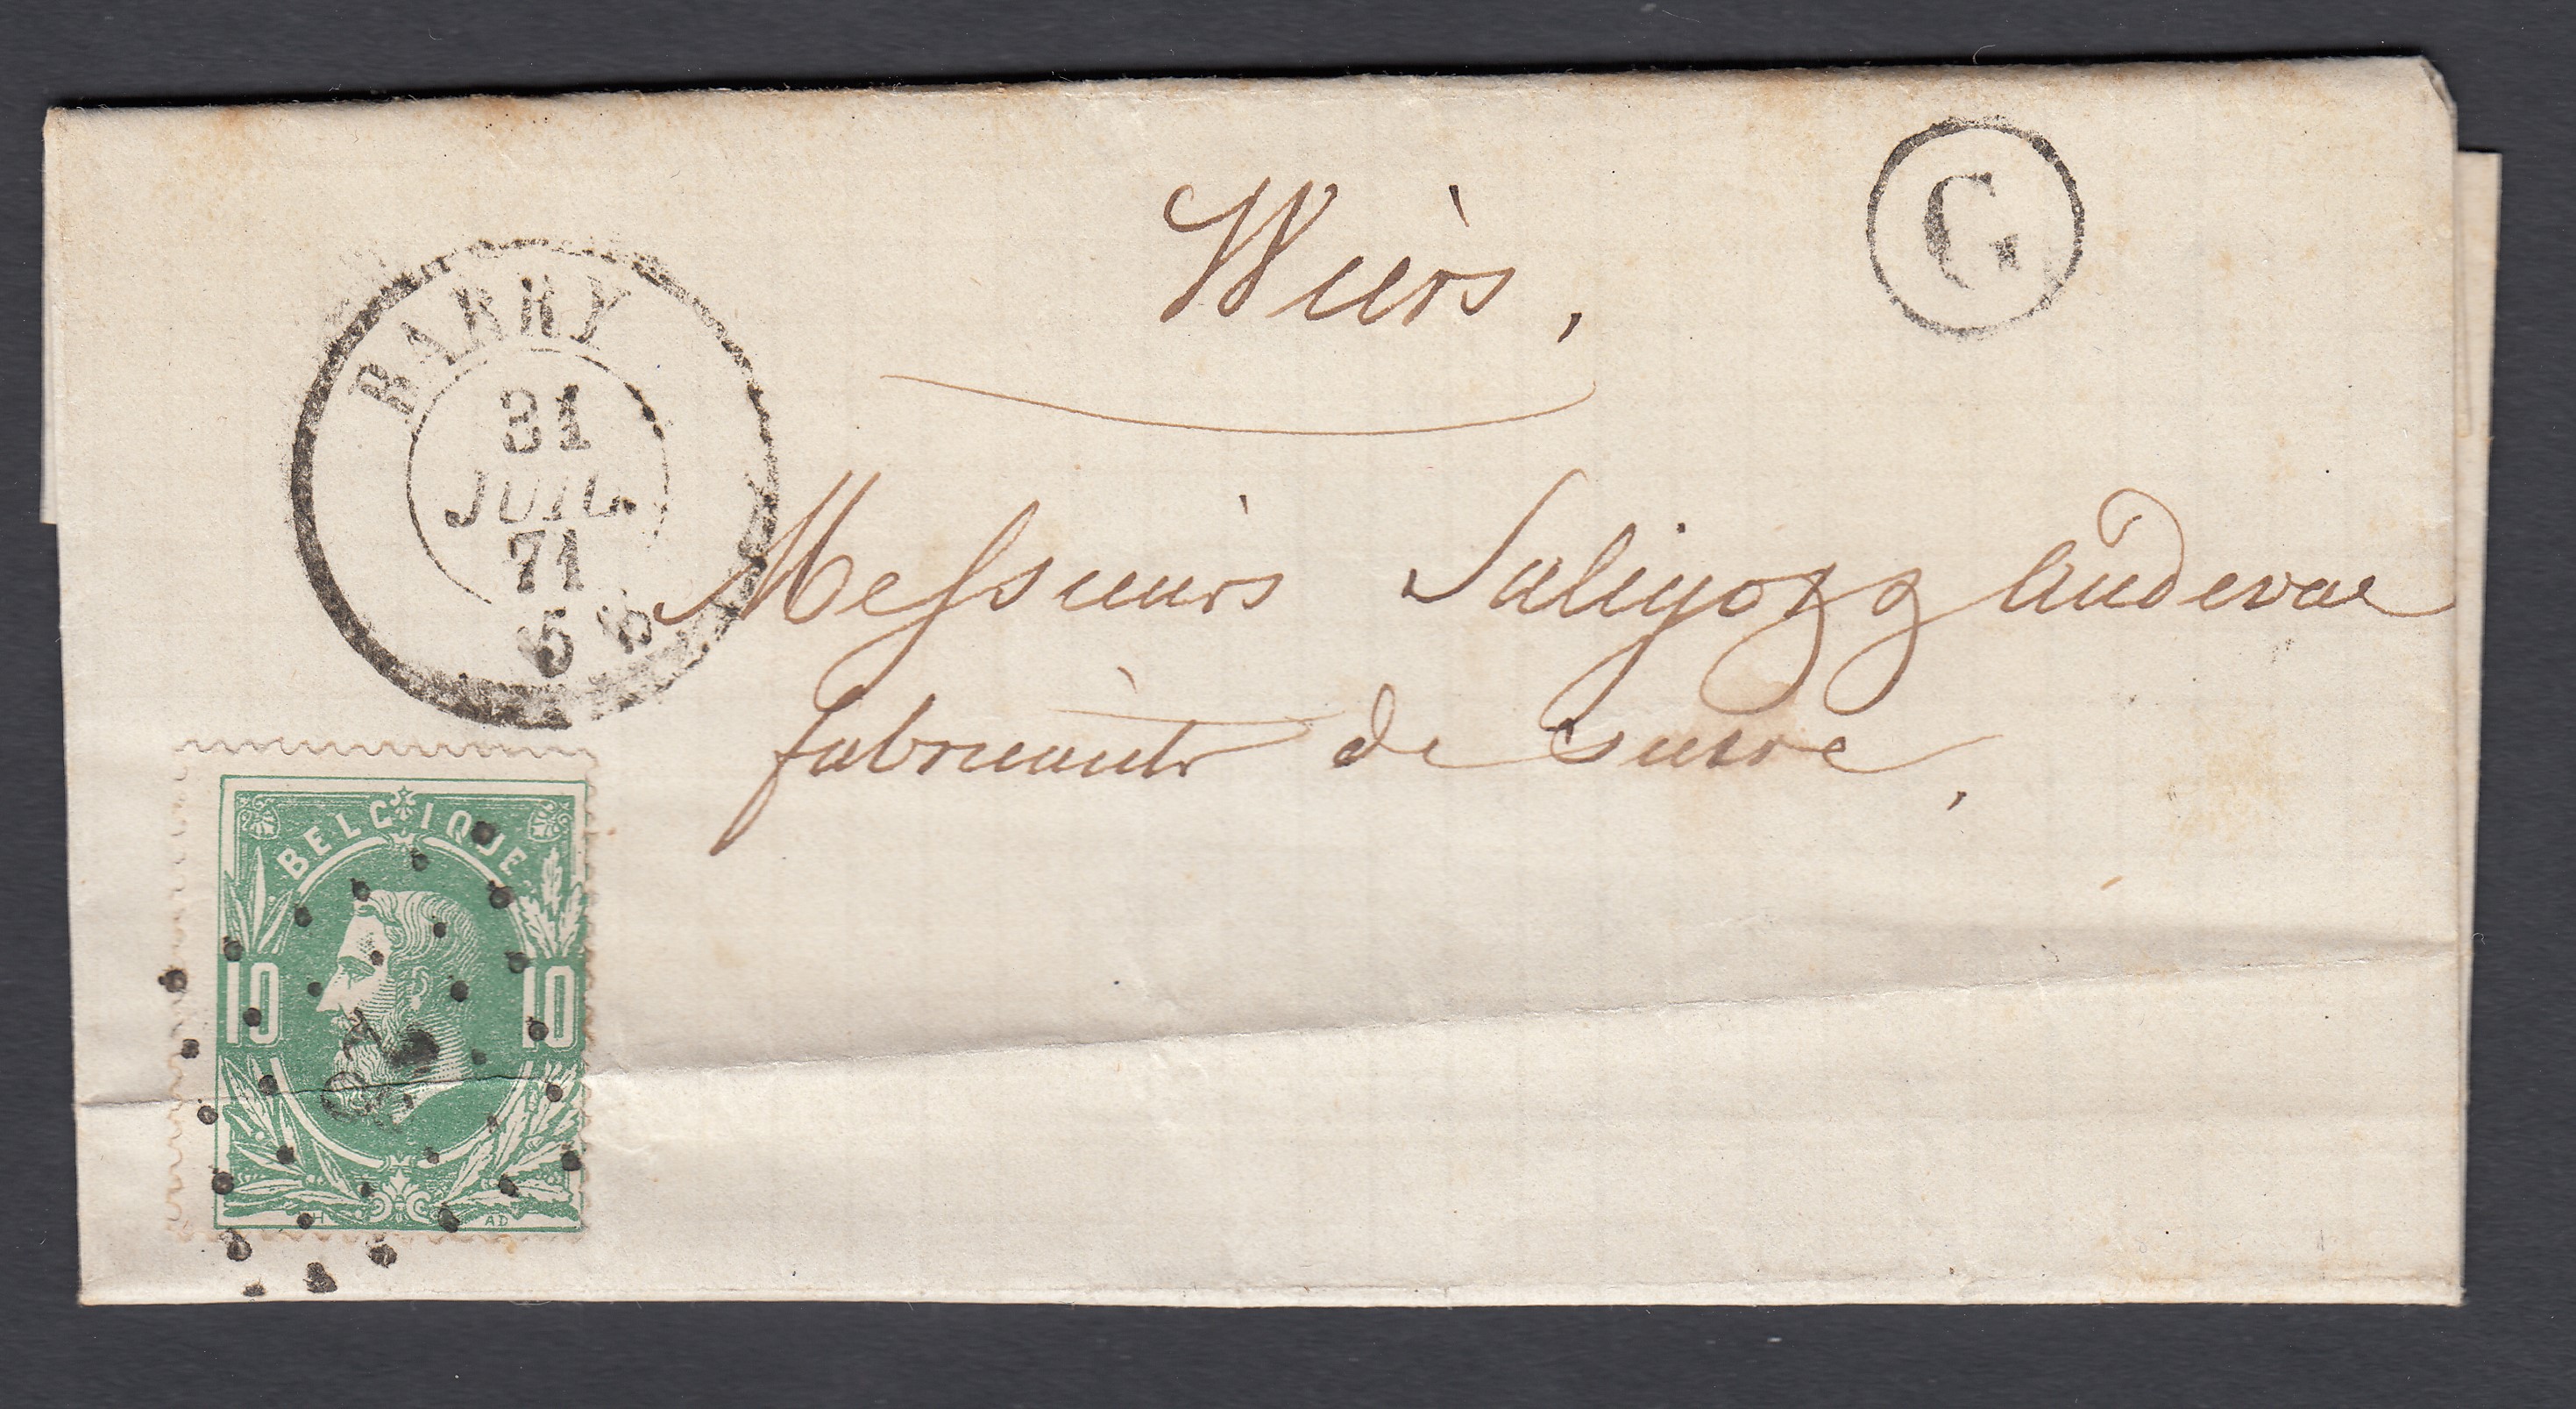 Wiers,
G
BARRY
31
JUIL.
71
5 S
Messieurs
fabricants de sucre,
BELGIQUE
10 10
H AD